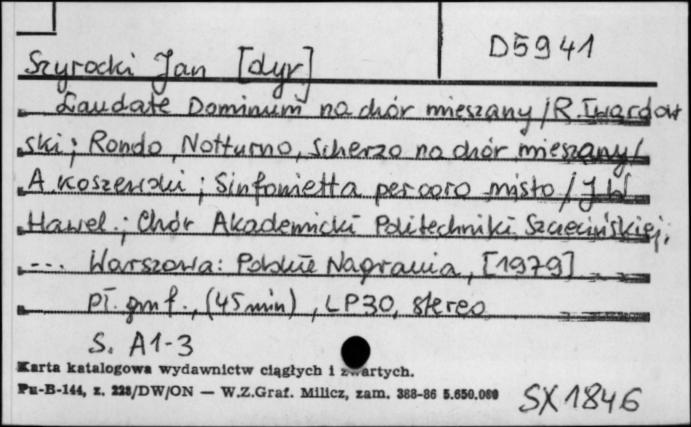 D5941
Szyrocki Jan [dyr]
Laudate Dominum na chór mieszany / R. Twardow
ski ; Rondo, Notturno, Scherzo na chór mieszany /
A. Koszewski ; Sinfonietta per coro misto / J. W.
Hawel. ; Chór Akademicki Politechniki Szczecińskiej ;
... Warszawa : Polskie Nagrania, [1979]
pł. gmf., (45 min), LP30, stereo
S. A1-3
Karta katalogowa wydawnictw ciągłych i zwartych.
Pu-B-144, z. 223/DW/ON — W.Z.Graf. Milicz, zam. 388-86 5.650.000
SX 1846